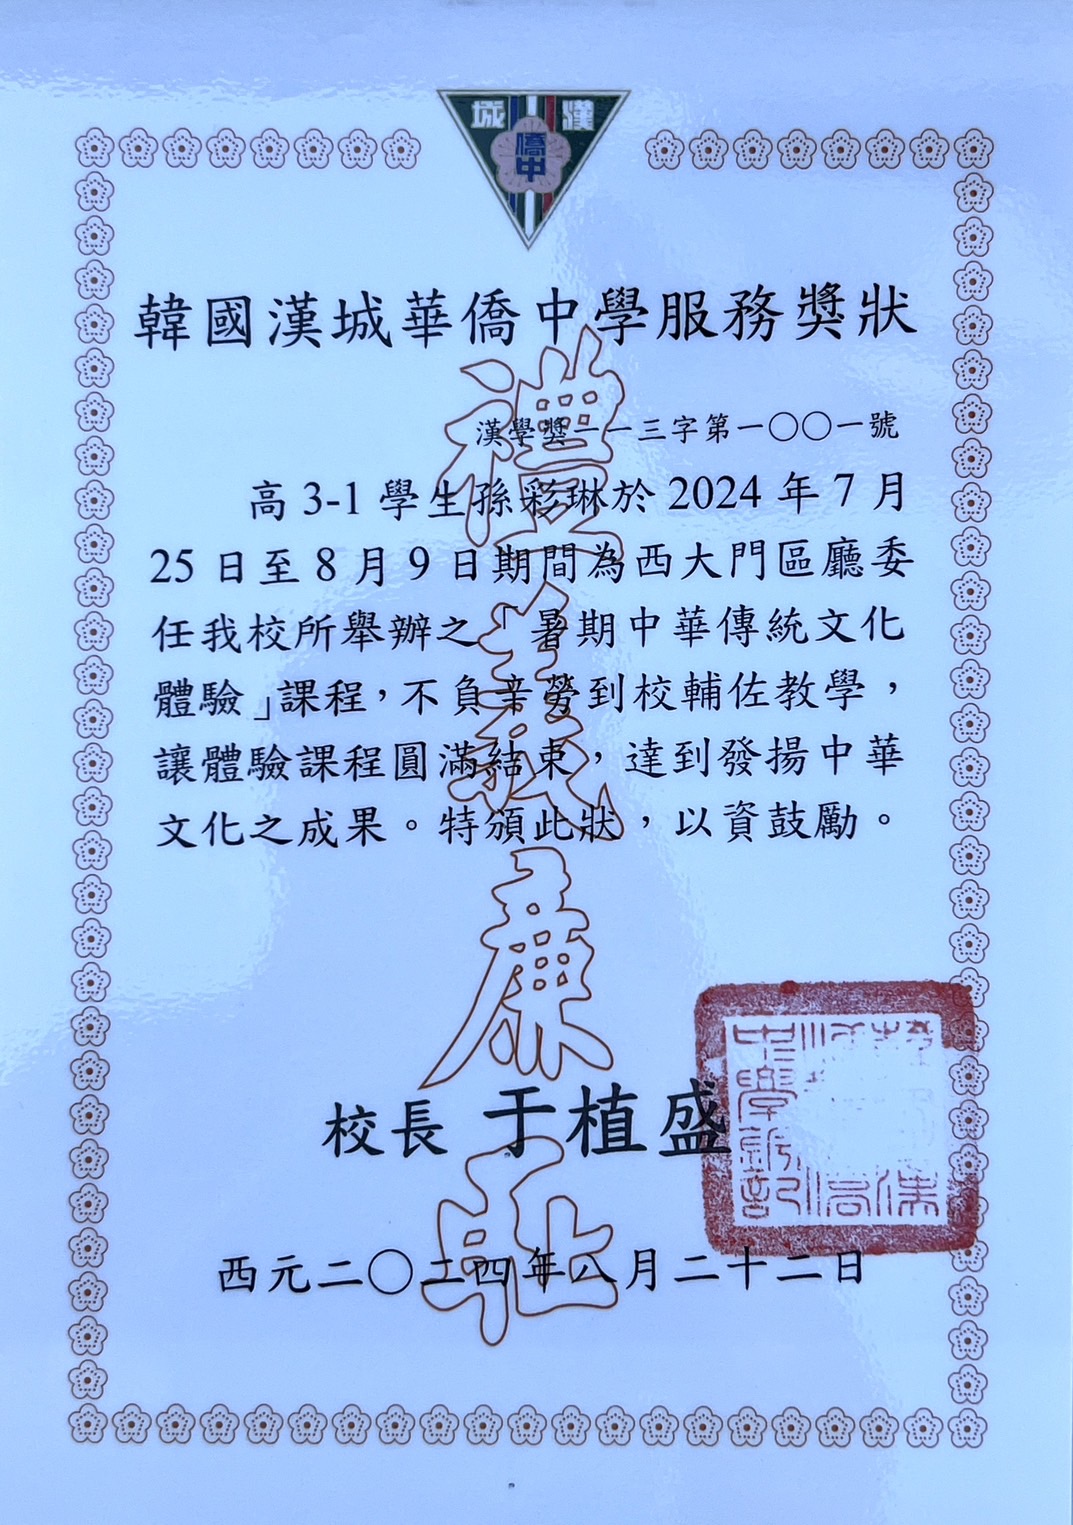 漢城
僑中
韓國漢城華僑中學服務獎狀
漢學獎一一三字第一〇〇一號
高 3-1 學生孫彩琳於 2024 年 7 月
25 日至 8 月 9 日期間為西大門區廳委
任我校所舉辦之「暑期中華傳統文化
體驗」課程，不負辛勞到校輔佐教學，
讓體驗課程圓滿結束，達到發揚中華
文化之成果。特頒此狀，以資鼓勵。
禮義廉恥
校長 于植盛
西元二〇二四年八月二十二日